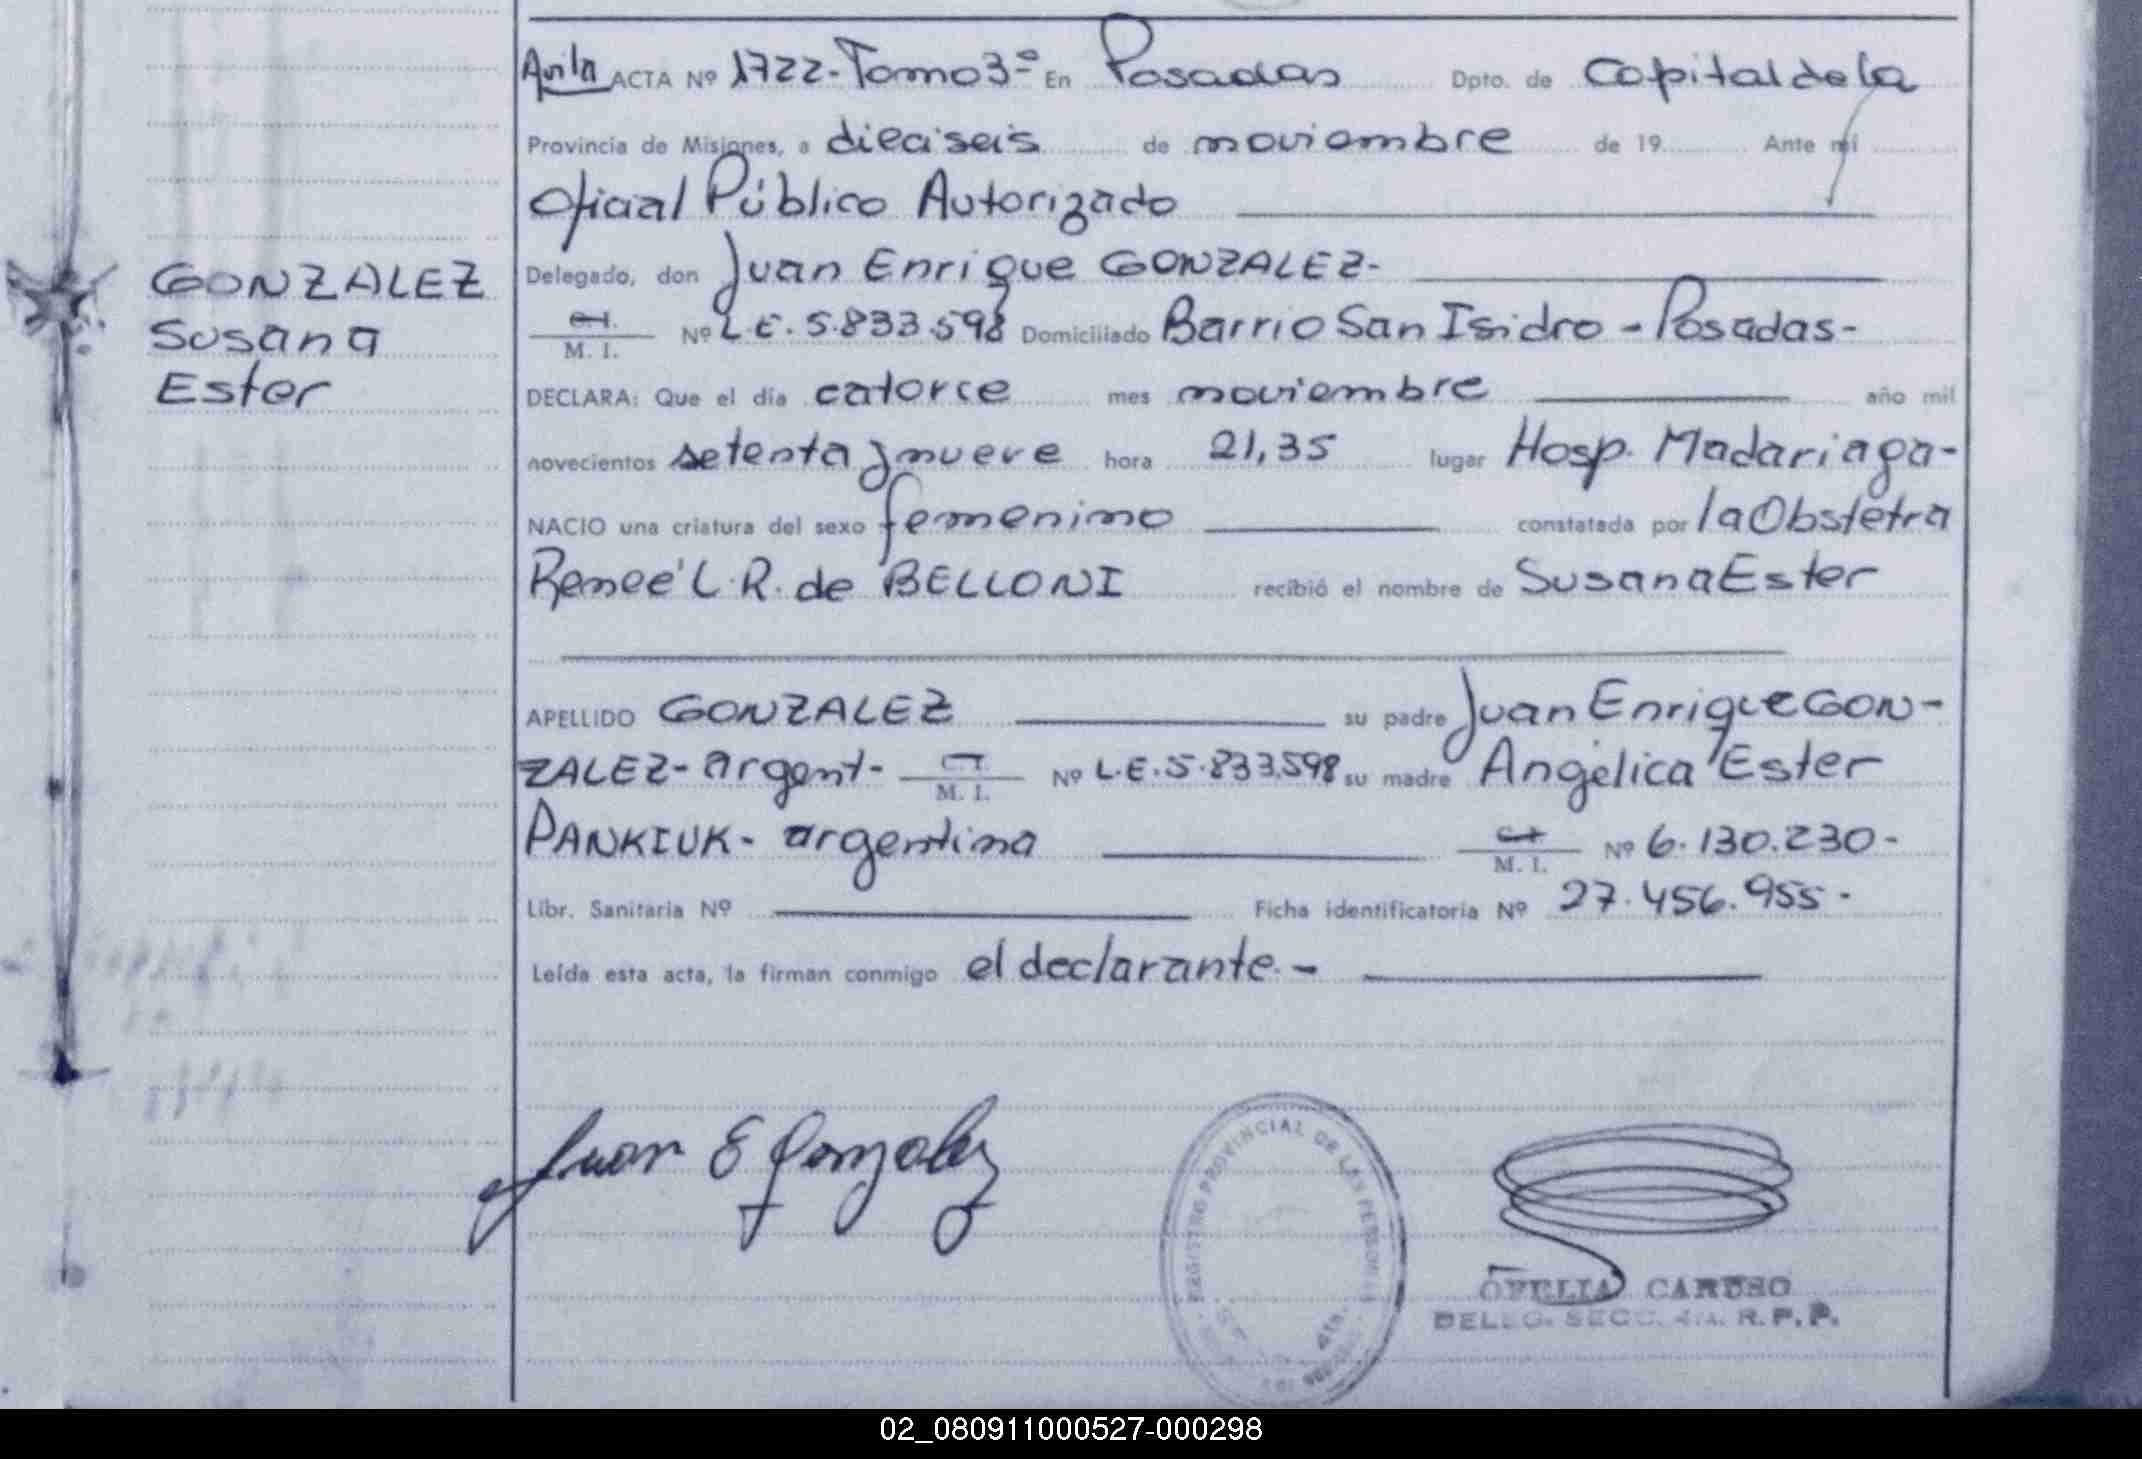 ACTA Nº 1722-Tomo 3º En Posadas Dpto. de Capital de la
Provincia de Misiones, a dieciseis de noviembre de 19 Ante mí
Oficial Público Autorizado
Delegado, don Juan Enrique GONZALEZ-
GONZALEZ
Susana
Ester
C.I.
M. I. Nº L.E. 5.833.598 Domiciliado Barrio San Isidro - Posadas-
DECLARA: Que el día catorce mes noviembre año mil
novecientos setenta y nueve hora 21,35 lugar Hosp. Madariaga-
NACIO una criatura del sexo femenino constatada por la Obstetra
Reneé L. R. de BELLONI recibió el nombre de Susana Ester
APELLIDO GONZALEZ su padre Juan Enrique GON-
ZALEZ- argent- M. I. Nº L.E. 5.833.598 su madre Angélica Ester
PANKIUK- argentina M. I. Nº 6.130.230-
Libr. Sanitaria Nº Ficha identificatoria Nº 27.456.955-
Leída esta acta, la firman conmigo el declarante.-
Juan E Gonzalez
REGISTRO PROVINCIAL DE LAS PERSONAS
4ta.
OFELIA CARUSO
DELEG. SECC. 4ta. R.P.P.
02_080911000527-000298